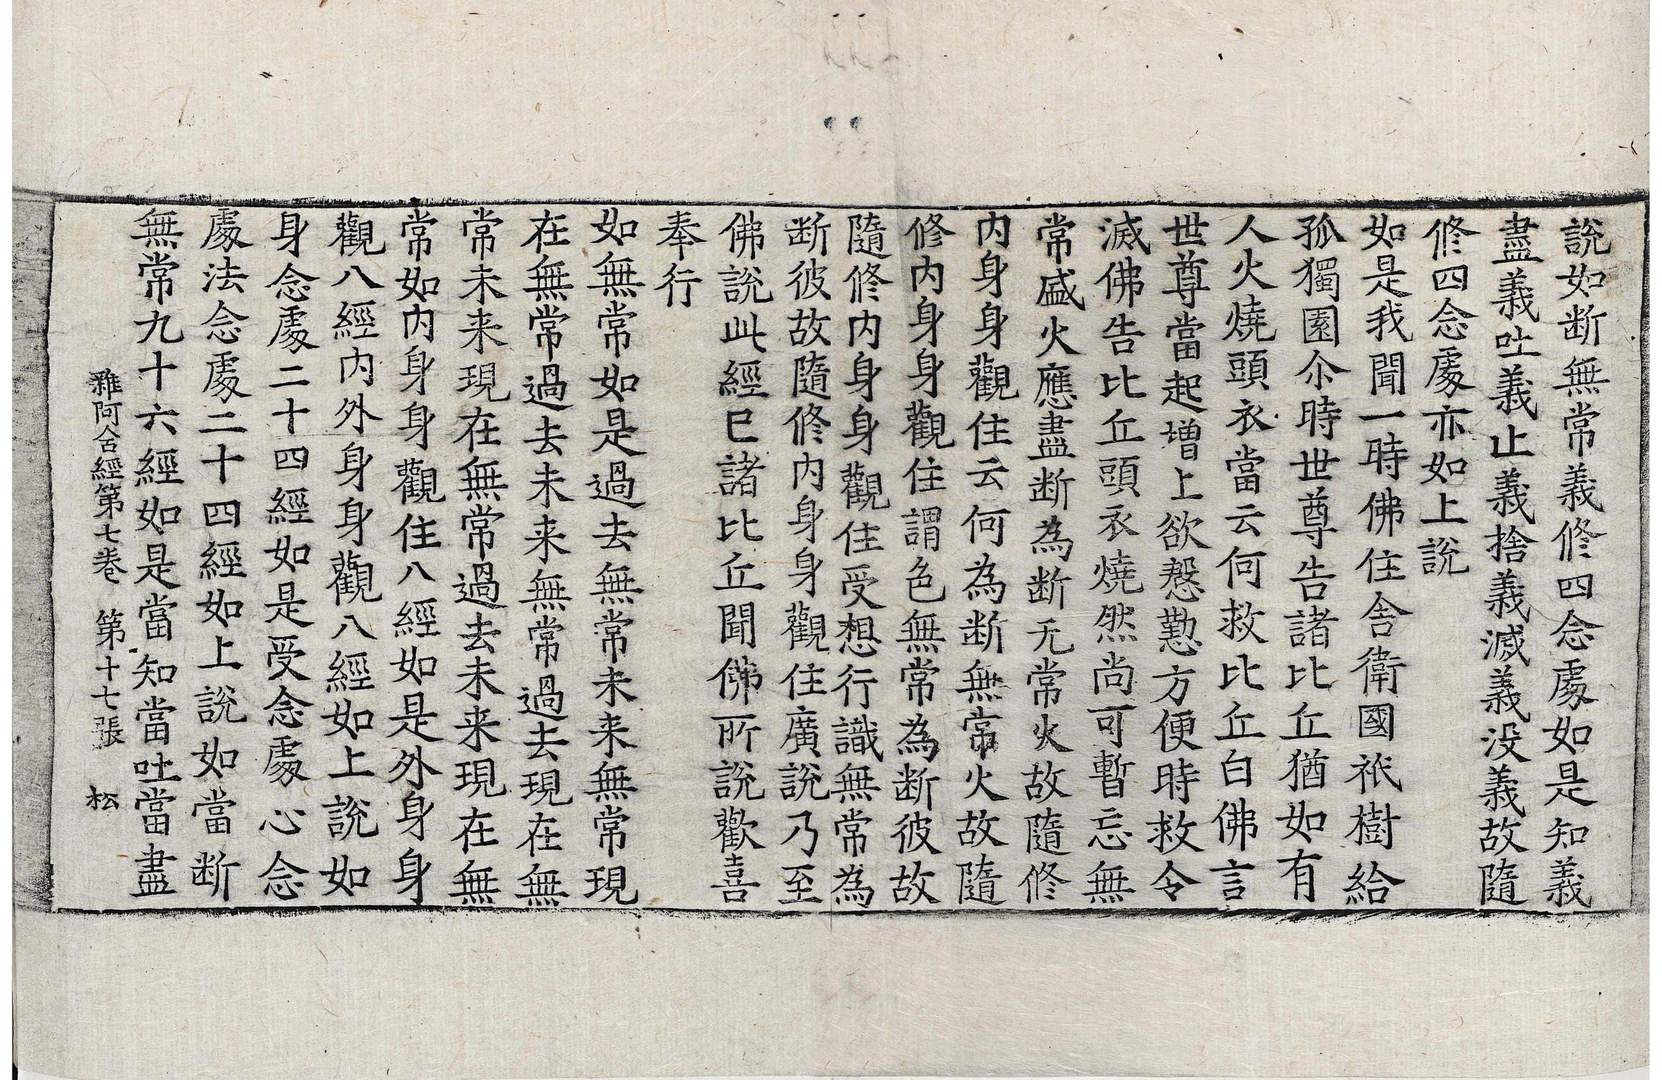 說如断無常義修四念處如是知義
盡義吐義止義捨義滅義没義故隨
修四念處亦如上說
如是我聞一時佛住舍衛國祇樹給
孤獨園尒時世尊告諸比丘猶如有
人火燒頭衣當云何救比丘白佛言
世尊當起增上欲慇懃方便時救令
滅佛告比丘頭衣燒然尚可暫忘無
常盛火應盡断為断无常火故隨修
内身身觀住云何為断無常火故隨
修内身身觀住謂色無常為断彼故
隨修内身身觀住受想行識無常為
断彼故隨修内身身觀住廣說乃至
佛說此經已諸比丘聞佛所說歡喜
奉行
如無常如是過去無常未来無常現
在無常過去未来無常過去現在無
常未来現在無常過去未来現在無
常如内身身觀住八經如是外身身
觀八經内外身身觀八經如上說如
身念處二十四經如是受念處心念
處法念處二十四經如上說如當断
無常九十六經如是當知當吐當盡
雜阿含經第七卷　第十七張　松